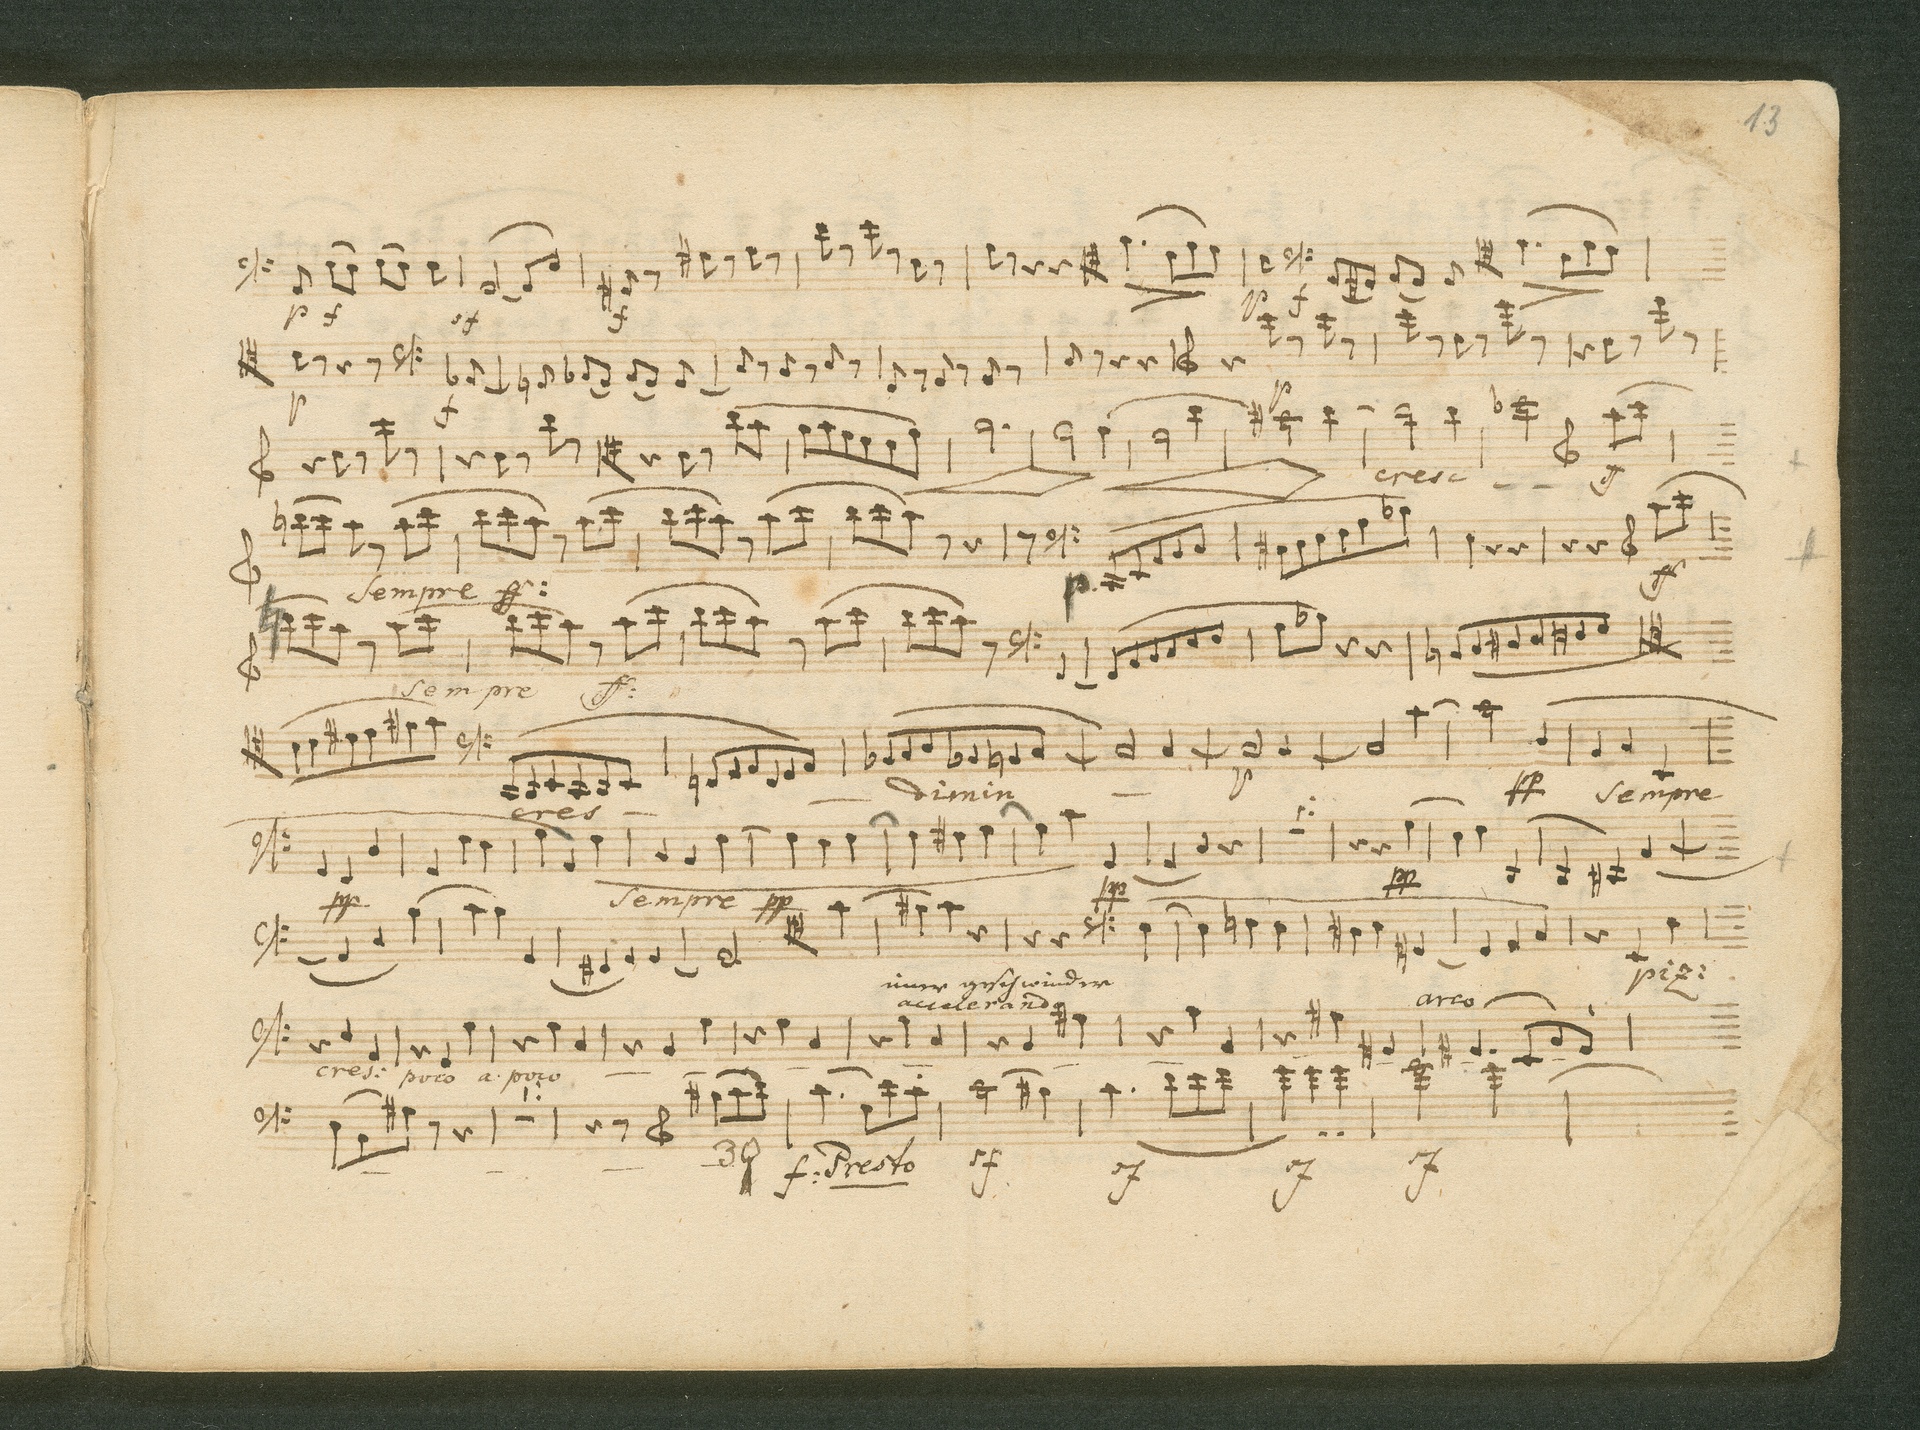 13
p f sf f p f
p f p
cresc ff
Sempre ff: p. ff
Sempre ff:
cres dimin p pp Sempre
pp Sempre pp pp pp
piz:
imer geschwinder
accelerando
arco
cres: poco a poco
f: Presto sf sf sf sf